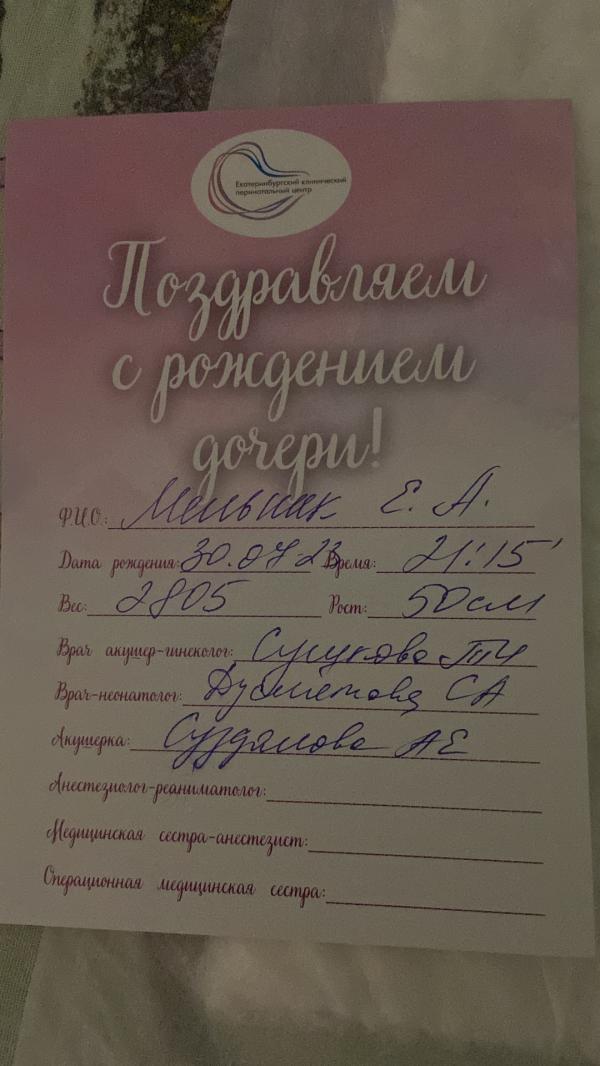 Екатеринбургский клинический
перинатальный центр
Поздравляем
с рождением
дочери!
Ф.И.О.: Мельник Е. А.
Дата рождения: 30.07.23 Время: 21:15
Вес: 2805 Рост: 50 см
Врач акушер-гинеколог:
Врач-неонатолог: СА
Акушерка: АЕ
Анестезиолог-реаниматолог:
Медицинская сестра-анестезист:
Операционная медицинская сестра: